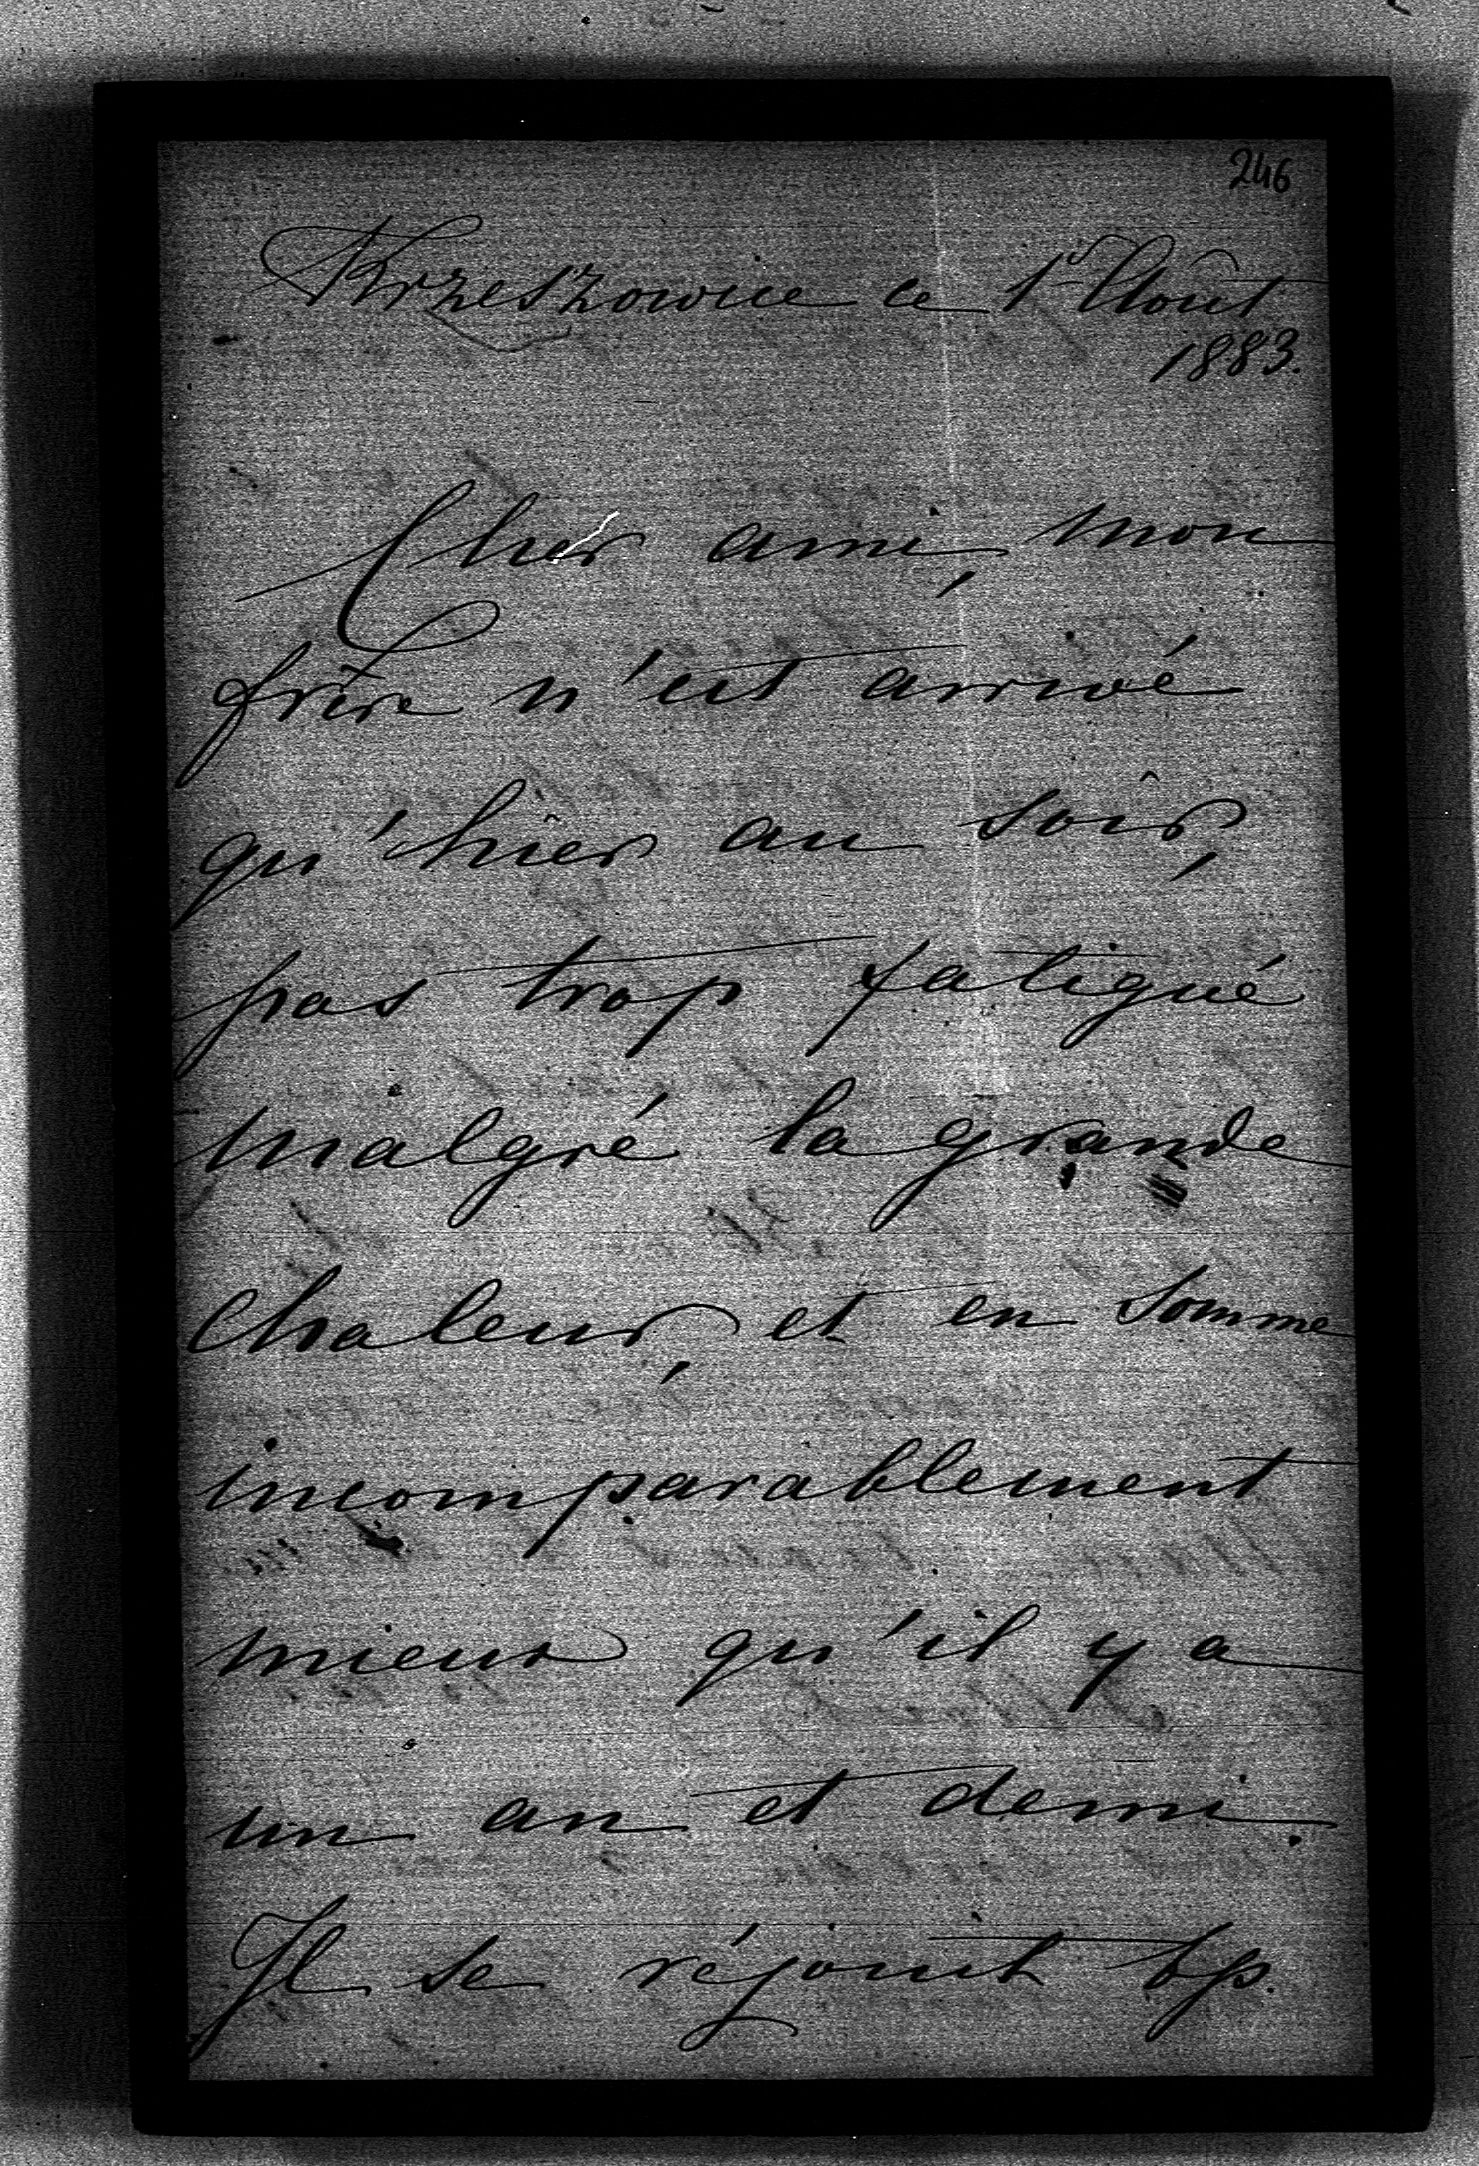 246
Krzeszowice ce 1r Août
1883.
Cher ami, mon
frère n'est arrivé
qu'hier au soir,
pas trop fatigué
malgré la grande
chaleur, et en somme
incomparablement
mieux qu'il y a
un an et demi.
Il se réjouit